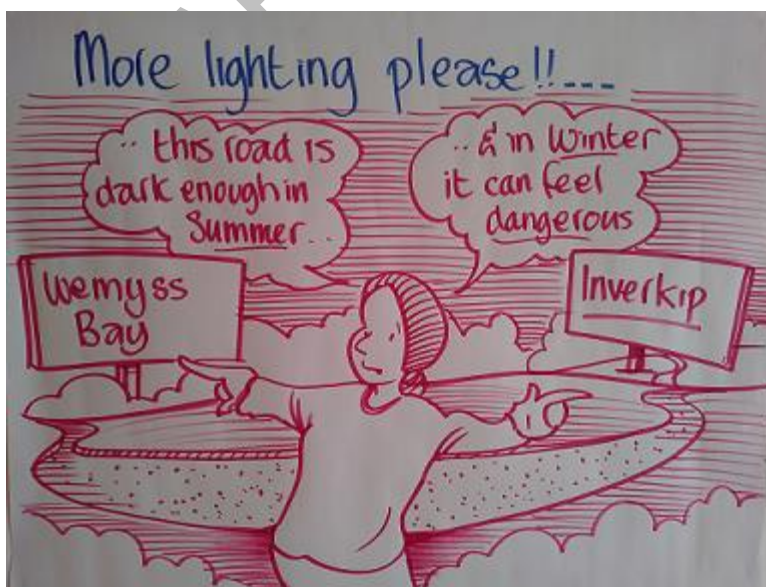 More lighting please!!---
.. this road is
dark enough in
Summer..
.. & in Winter
it can feel
dangerous
Wemyss
Bay
Inverkip